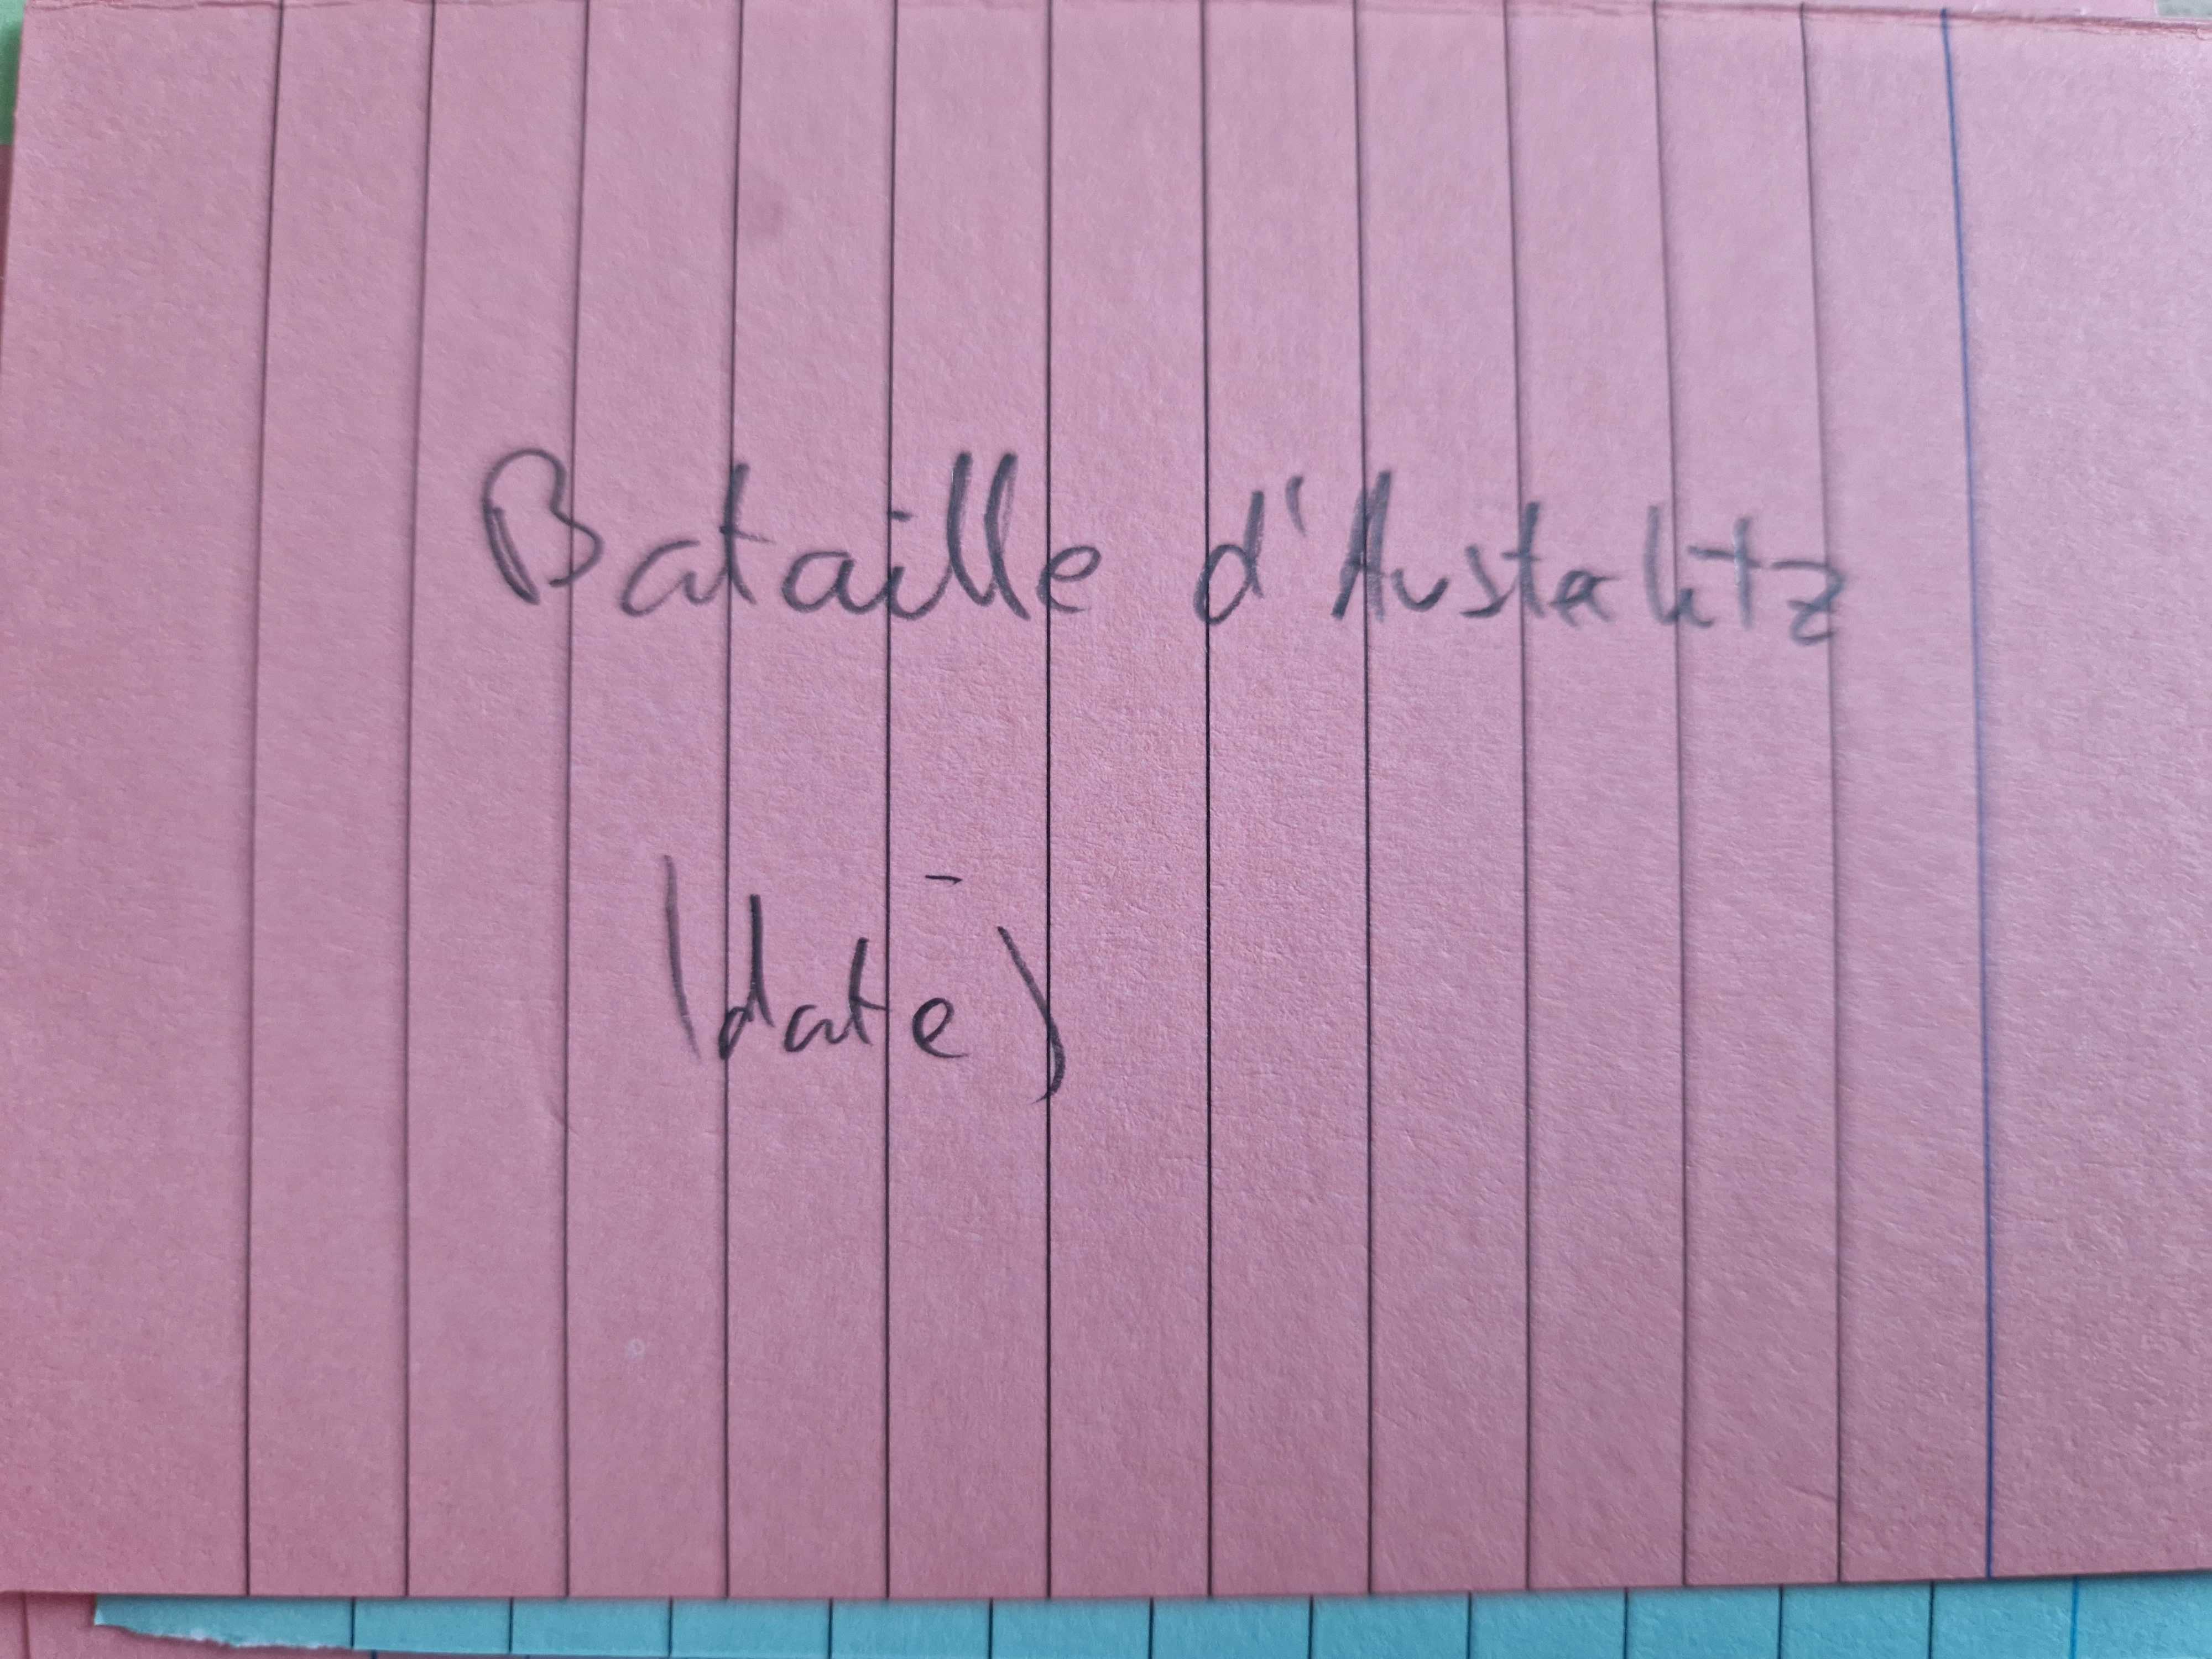 Bataille d'Austerlitz
(date)